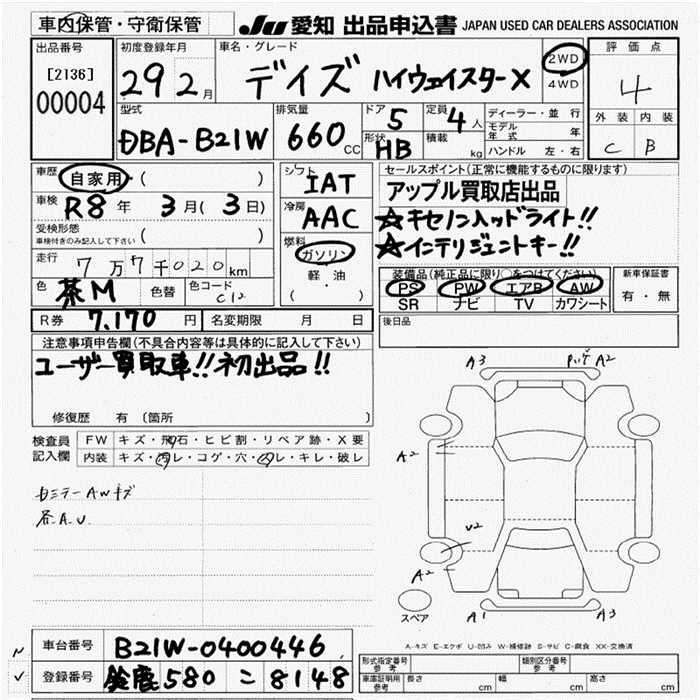 車内保管・守衛保管 JU 愛知 出品申込書 JAPAN USED CAR DEALERS ASSOCIATION
出品番号 [2136] 00004
初度登録年月 29 2月
車名・グレード デイズ ハイウェイスターX
2WD
4WD
評価点 4
外装 内装
C B
型式 DBA-B21W
排気量 660 CC
ドア 5
定員 4人
形状 HB
積載 kg
ディーラー・並行
モデル年式 年
ハンドル 左・右
車歴 自家用・( )
車検 R8年 3月(3日)
受検形態 ( )
車検付きのみ記入して下さい
走行 7万7千020km
色 茶M 色替 色コード C12
シフト IAT
冷房 AAC
燃料 ガソリン
軽・油
( ・ )
セールスポイント(正常に機能するものに限ります)
アップル買取店出品
☆キセノンヘッドライト!!
☆インテリジェントキー!!
装備品(純正品に限り○をつけてください)
PS PW エアB AW
SR ナビ TV カワシート
新車保証書
有・無
R券 7,170円 名変期限 月 日
後日品
注意事項申告欄(不具合内容等は具体的に記入して下さい)
ユーザー買取車!!初出品!!
修復歴 有 〔箇所 〕
検査員記入欄
FW キズ・飛石・ヒビ割・リペア跡・X要
内装 キズ・汚レ・コゲ・穴・スレ・キレ・破レ
AWキズ
A.U
A3 A2
A2
U2
A2
A1 A3
スペア
A-キズ E-エクボ U-凹み W-補修跡 S-サビ C-腐食 XX-交換済
車台番号 B21W-0400446
登録番号 鈴鹿 580 ニ 8148
形式指定番号 参考 類別区分番号 参考
車庫証明用 参考 長さ cm 幅 cm 高さ cm